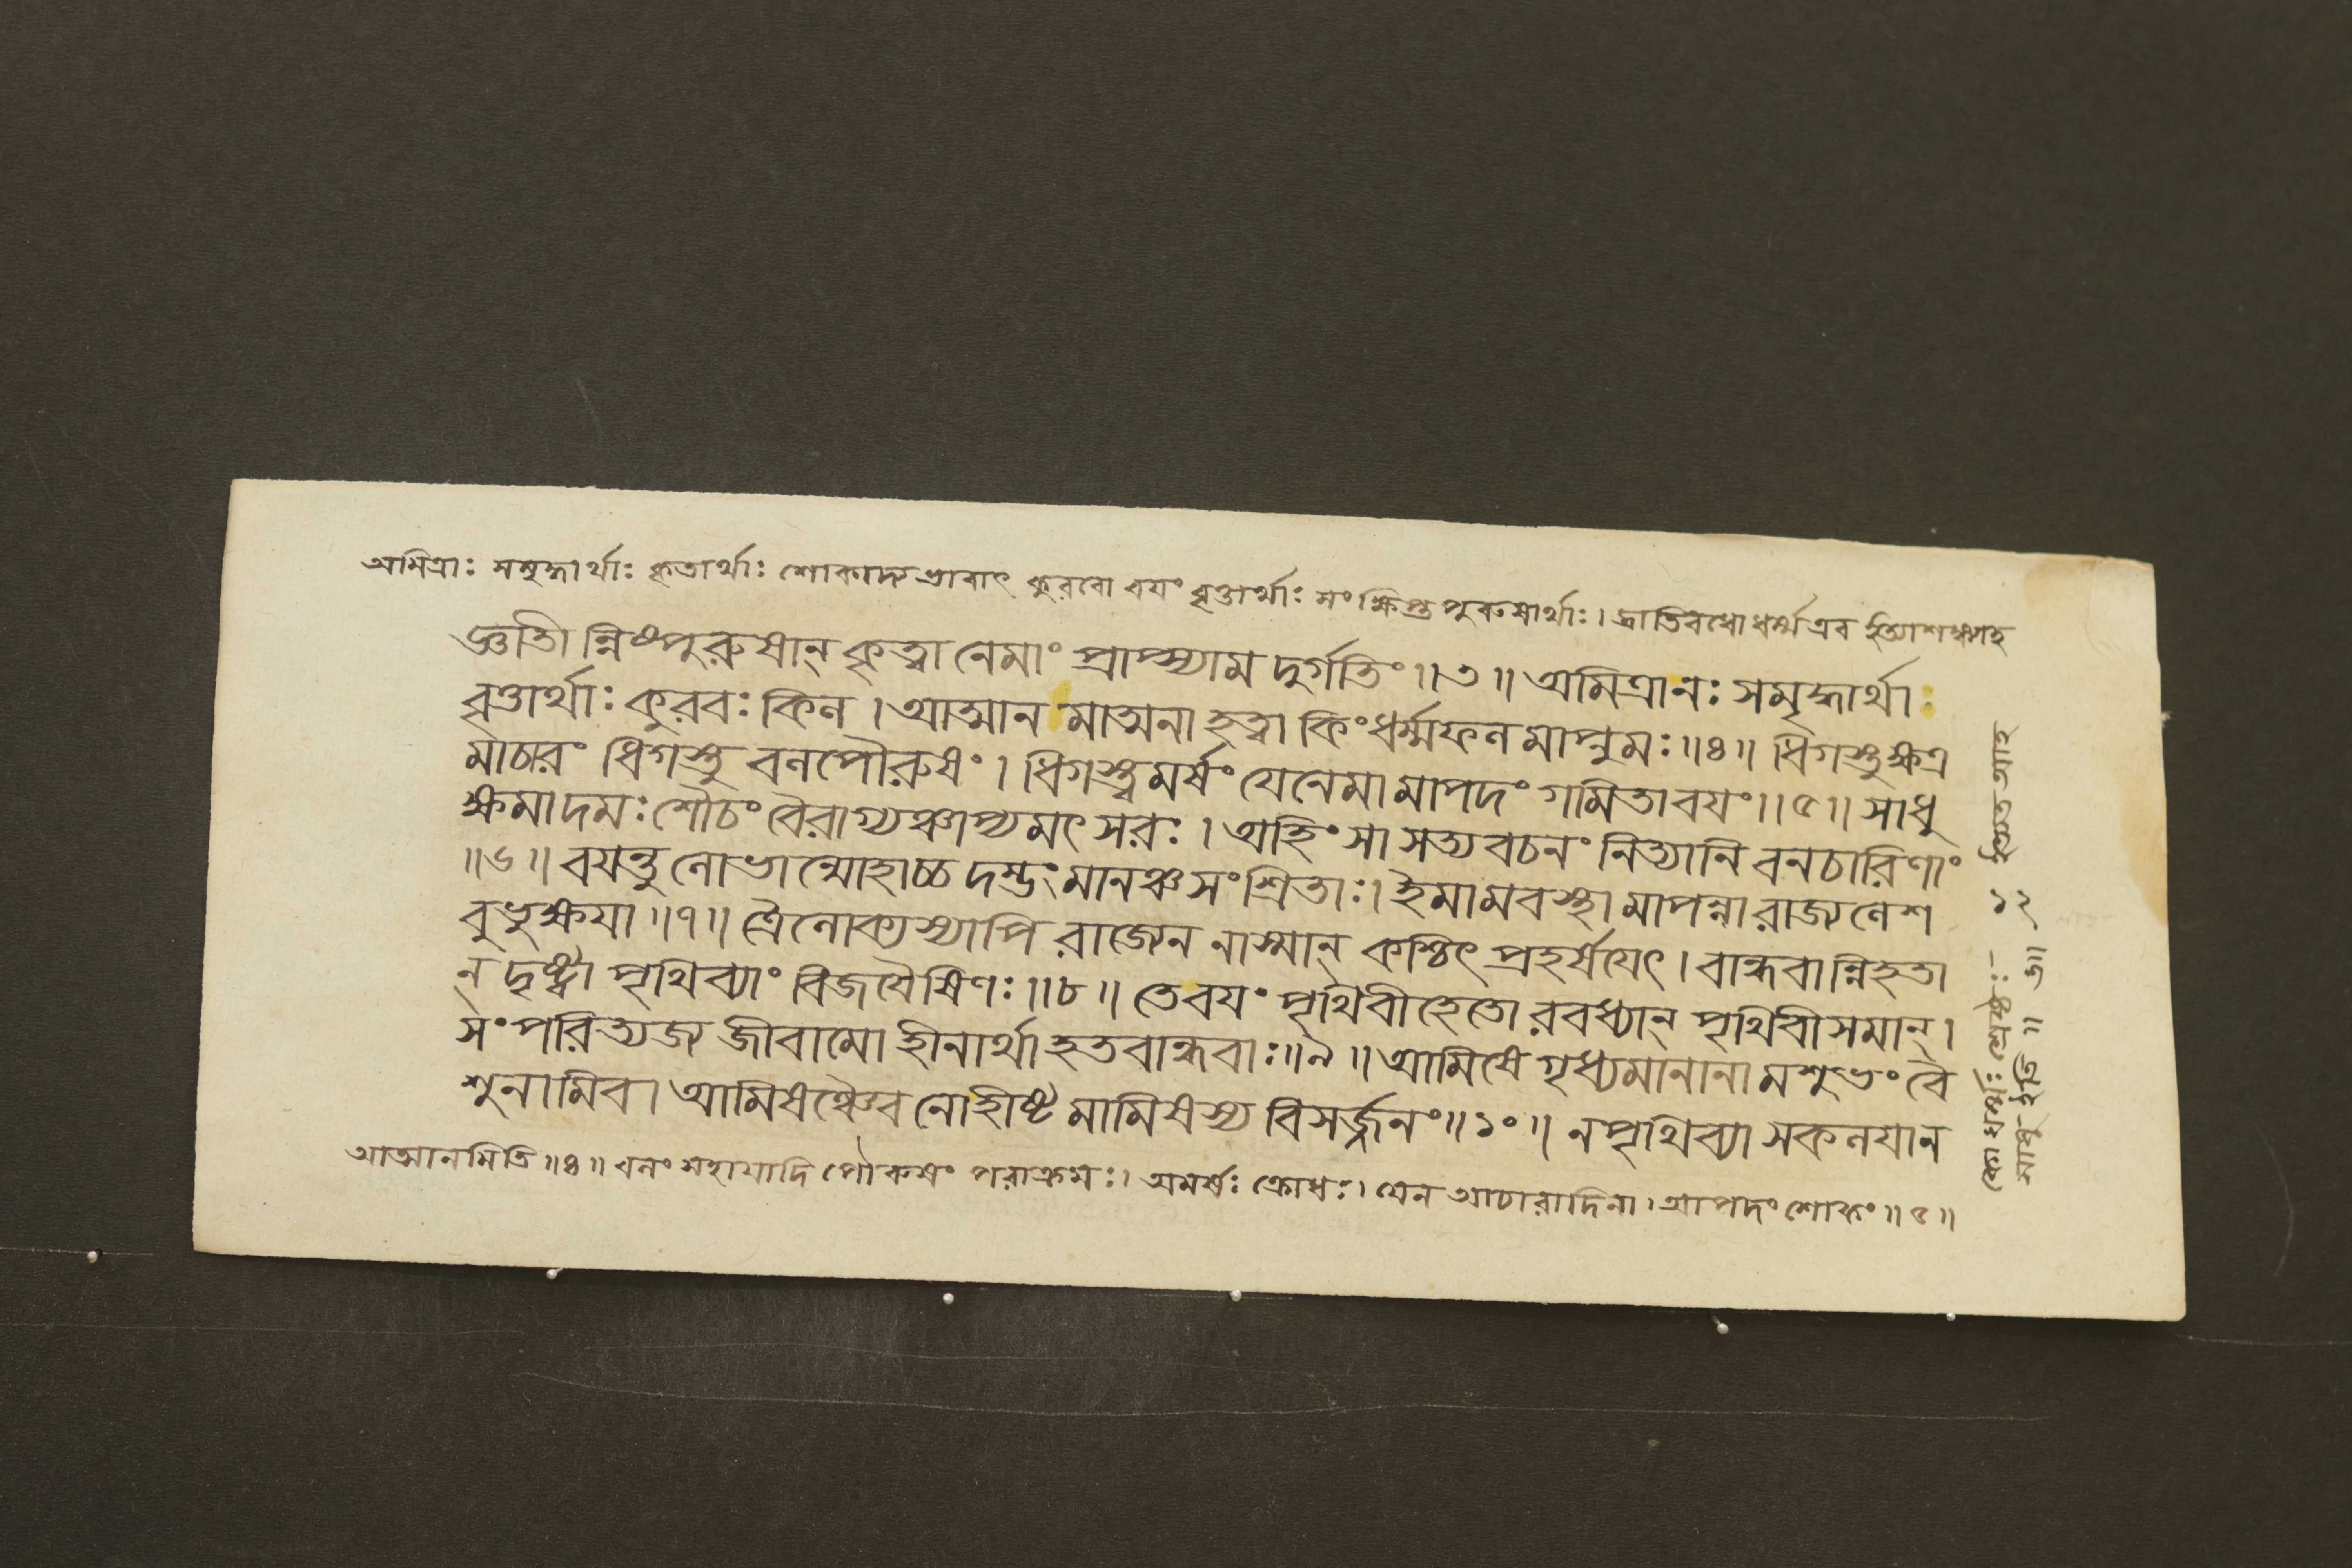 অমিত্রাঃ সমৃদ্ধার্থাঃ কৃতার্থাঃ শোকাদ্যভাবাৎ কুরবো বযং বৃত্তার্থাঃ সংক্ষিপ্তপুরুষার্থাঃ। জ্ঞাতিবধো ধর্ম্ম এব
জ্ঞাতীন্নিষ্পুরুষান্ কৃত্বা নেমাং প্রাপ্স্যাম দুর্গতিং॥৩॥ অমিত্রানঃ সমৃদ্ধার্থাঃ
বৃত্তার্থাঃ কুরবঃ কিল। আত্মানমাত্মনা হত্বা কিংধর্ম্মফলমাপ্নুমঃ॥৪॥ ধিগস্তুক্ষত্র
মাচারং ধিগস্তু বলপৌরুষং। ধিগস্ত্বমর্ষং যেনেমামাপদং গমিতাবযং॥৫॥ সাধু
ক্ষমাদমঃ শৌচং বৈরাগ্যঞ্চাপ্যমৎসরঃ। অহিংসা সত্যবচনং নিত্যানি বনচারিণাং
॥৬॥ বযন্তু লোভান্মোহাচ্চ দম্ভংমানঞ্চসংশ্রিতাঃ। ইমামবস্থামাপন্না রাজ্যলেশ
বুভুক্ষযা॥৭॥ ত্রৈলোক্যস্যাপি রাজ্যেন নাস্মান্ কশ্চিৎ প্রহর্ষযেৎ। বান্ধবান্নিহতা
ন্ দৃষ্ট্বা পৃথিব্যাং বিজযৈষিণঃ॥৮॥ তেবযং পৃথিবীহেতোরবধ্যান্ পৃথিবীসমান্।
সংপরিত্যজ্য জীবামো হীনার্থা হতবান্ধবাঃ॥৯॥ আমিষে গৃধ্যমানানামশুভং বৈ
শুনামিব। আমিষঞ্চৈব নোহীষ্টমামিষস্য বিসর্জ্জনং॥১০॥ নপৃথিব্যা সকলযা ন
আত্মানমিতি॥৪॥ বলং সহাযাদি পৌরুষং পরাক্রমঃ। অমর্ষঃ ক্রোধঃ। যেন আচারাদিনা। আপদং শোকং॥৫॥
কো ধর্ম্মঃ শ্রেষ্ঠঃ- ১২ আহ
সাধু ইতি॥ ৬॥